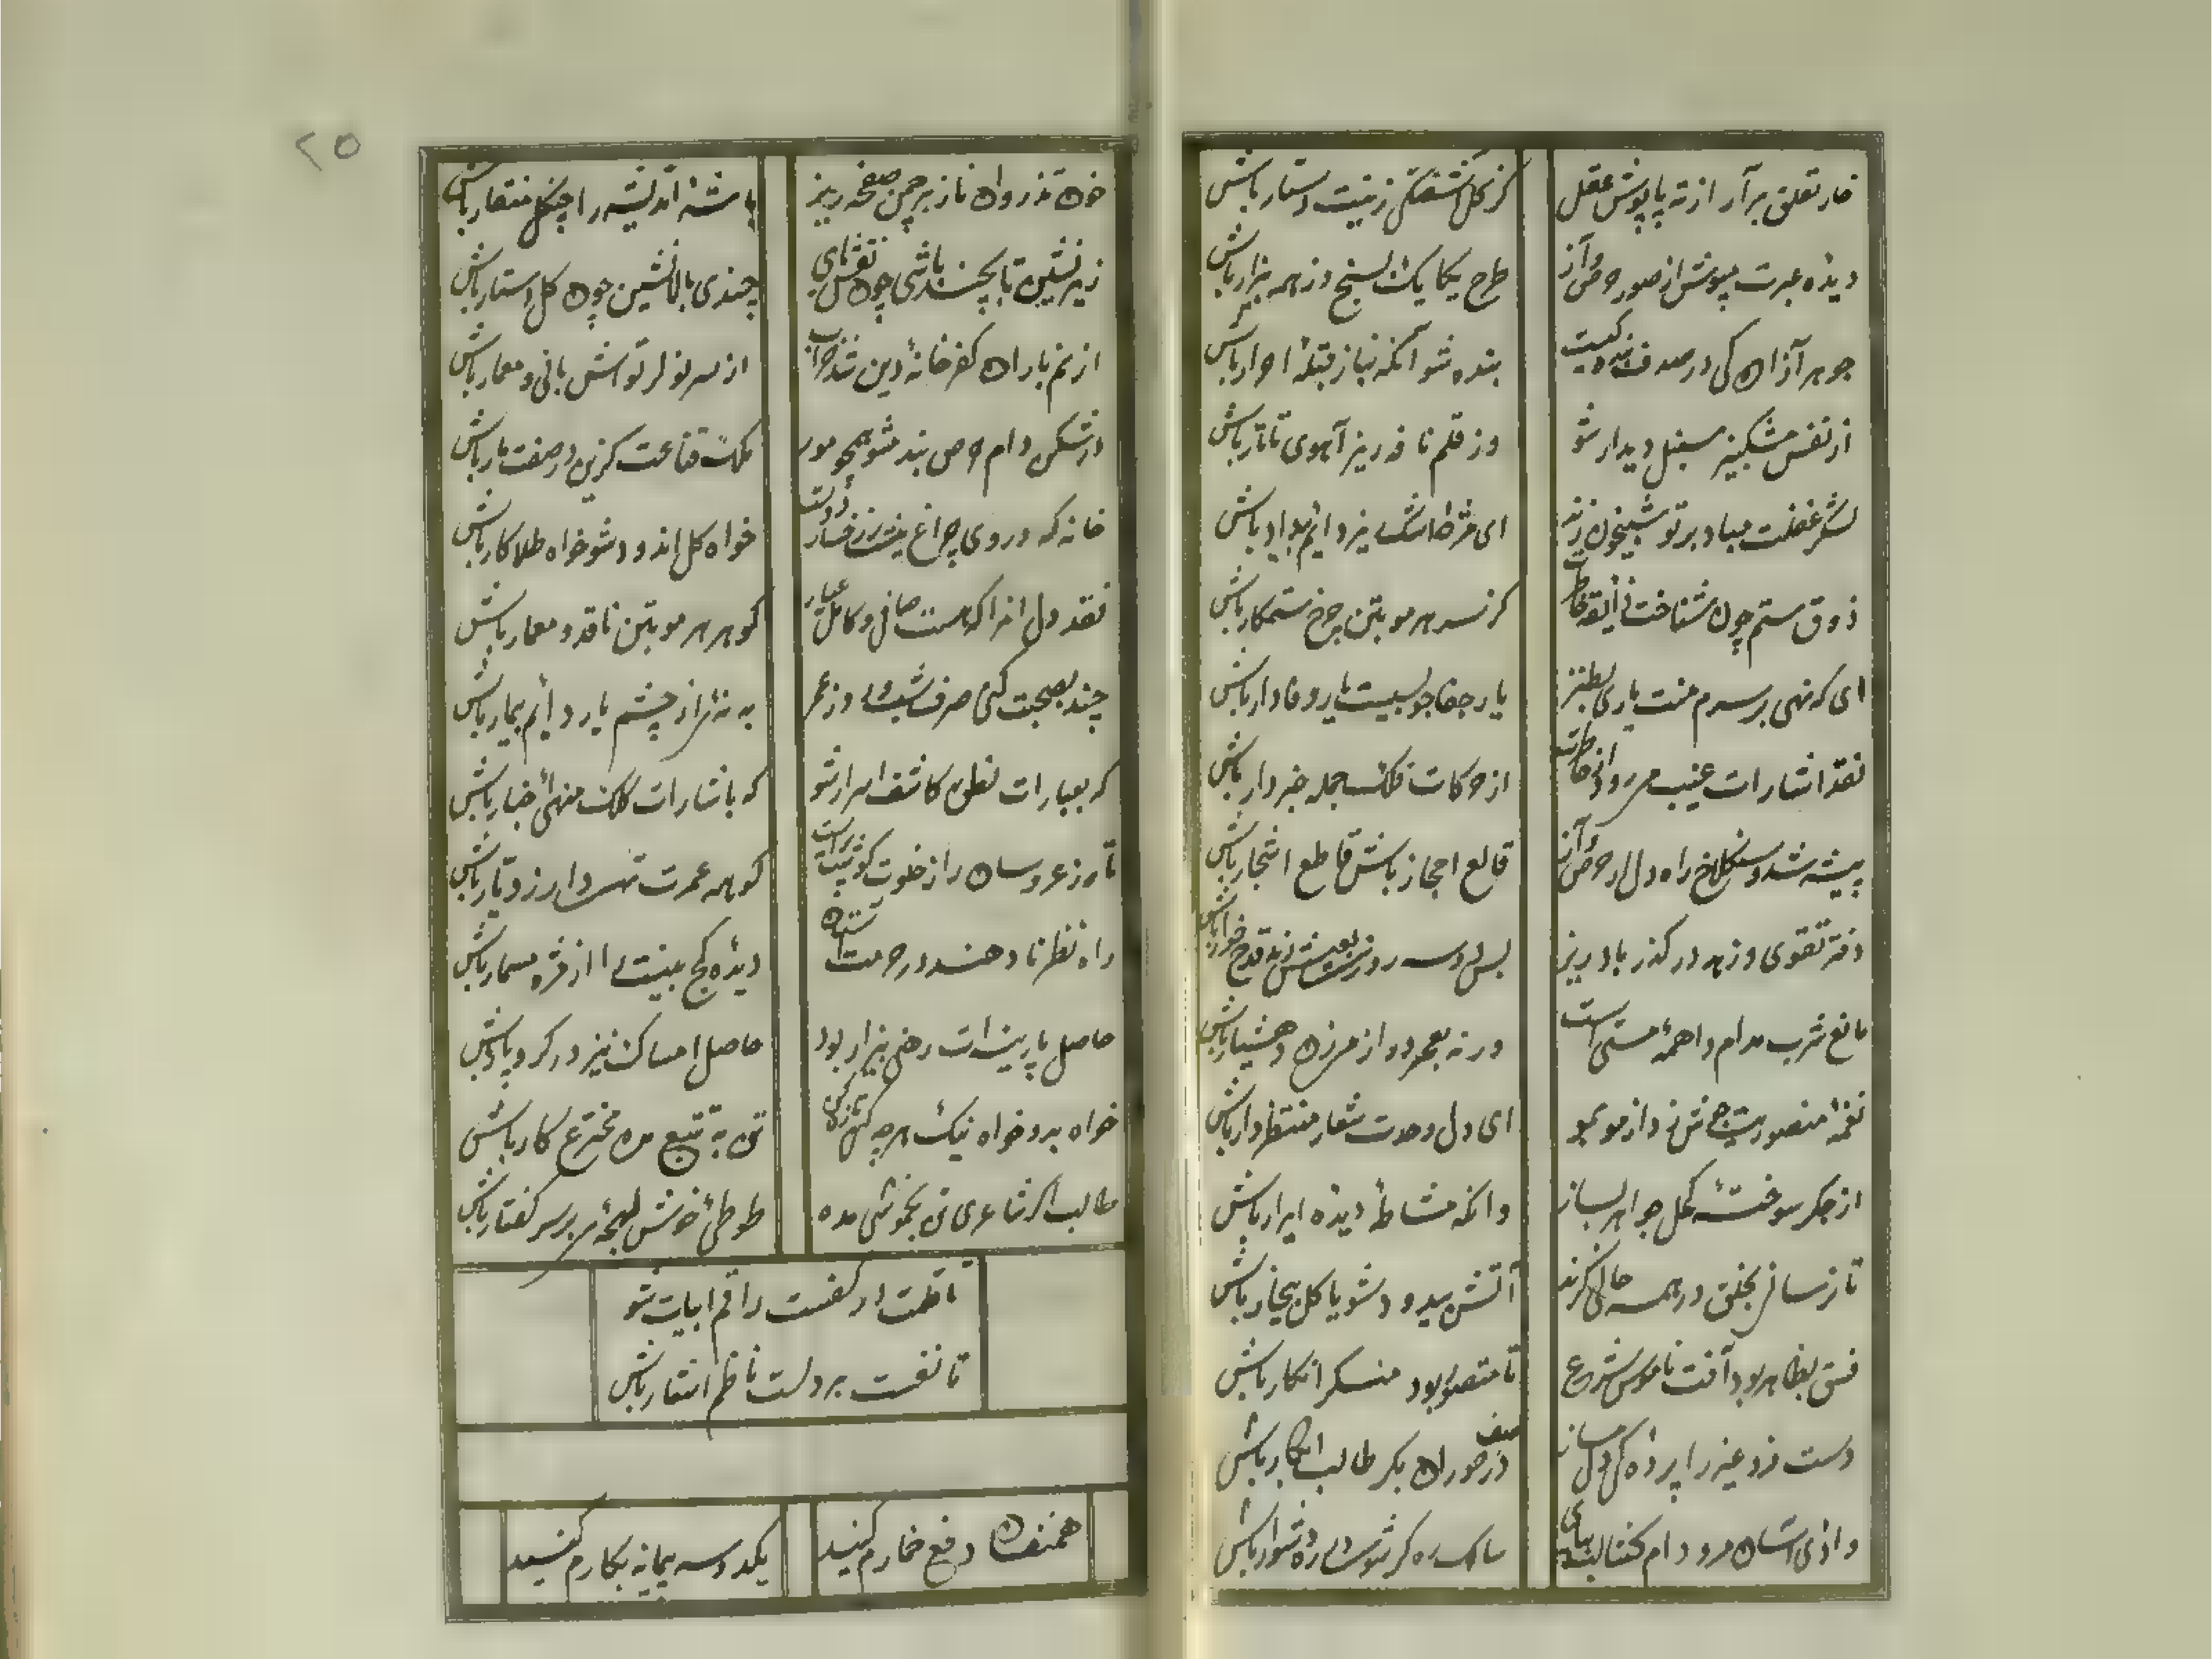 خار تعلق برآر از ته پاپوش عقل
کز گل آشفتگی زینت دستار باش
دیده عبرت بپوش از صور حرص و آز
طرح یکایک بسنج وز همه بیزار باش
جوهر آزادن کی در صدف بندگیست
بنده شو آنگه نیاز قبله احرار باش
از نفس مشکبیز سنبل دیدار شو
وز قلم نافه ریز آهوی تاتار باش
لشکر غفلت مباد بر تو شبیخون زند
ای مژه اشک ریز دایم بیدار باش
ذوق ستم چون شناخت ذایقه خاطرت
کز سر هر مو بتن چرخ ستمکار باش
ای که نهی بر سرم منت یاری بطنز
یار جفاجو بسیست یار وفادار باش
نقد اشارات غیب می رود از خاطرت
از حرکات فلک جمله خبردار باش
بیشه شد و سنگلاخ راه دل از حرص و آز
قالع احجار باش قاطع اشجار باش
دفتر تقوی و زهد در گذر باد ریز
پس دو سه روزی بعیش زند قدح خوار باش
مانع شرب مدام واهمه مستی است
ورنه بعمر دراز مرزن و هشیار باش
نغمه منصوریت می زند از مو بمو
ای دل وحدت شعار منتظر دار باش
از جگر سوخته کحل جواهر بساز
وانگه مشاطه دیده ابرار باش
تا نرسانی بخلق در همه حالی گزند
آتش بی دود شو یا گل بیخار باش
فسق بظاهر بود آفت ناموس شرع
تا متصور بود منکر انکار باش
دست زد غیر را پرده کی دل مساز
در صف حوران بکر طالب ابکار باش
وادی آسان مرو دام کسالت بپای
سالک ره گر شوی در ره دشوار باش
۲۵
خون تذروان ناز بر چمن صفحه ریز
باشه اندیشه را چنگل منقار باش
زیرنشین تا بچند باشی چون نقش پای
چندی بالانشین چون گل دستار باش
از نم باران کفر خانه دین شد خراب
از سر نو لر تواش بانی و معمار باش
در شکن دام حرص بند مشو همچو مور
ملک قناعت گزین در صفت مار باش
خانه که در وی چراغ نیست ز رخسار دوست
خواه گل اندود شو خواه طلاکار باش
نقد دل آنرا که هست صافی و کامل عیار
گو هر هر مو بتن ناقد و معیار باش
چند بصحبت کنی صرف شب و روز عمر
به نه از چشم یار دایم بیمار باش
که بعبارات نطق کاشف اسرار شو
که باشارات کلک منهی اخبار باش
تازه عروسان راز خلوت گوشت بس است
گو همه عمرت تهی دار ز دیار باش
راه نظر تا دهند در حرمت آستان
دیده کج بینیت را از مژه مسمار باش
حاصل پارینه ات رخنی بیزار بود
حاصل امساک نیز در کرو پار باش
خواه بد و خواه نیک هرچه کنی تازه کن
تن به تتبع مده مخترع کار باش
طالب اگر شاعری تن بخموشی مده
طوطی خوش لهجه بر سر گفتار باش
تا قلمت در کفست راقم ابیات شو
تا نفست بر دلست ناظم اشعار باش
همنفسان دفع خمارم کنید
یکدو سه پیمانه بکارم کنید